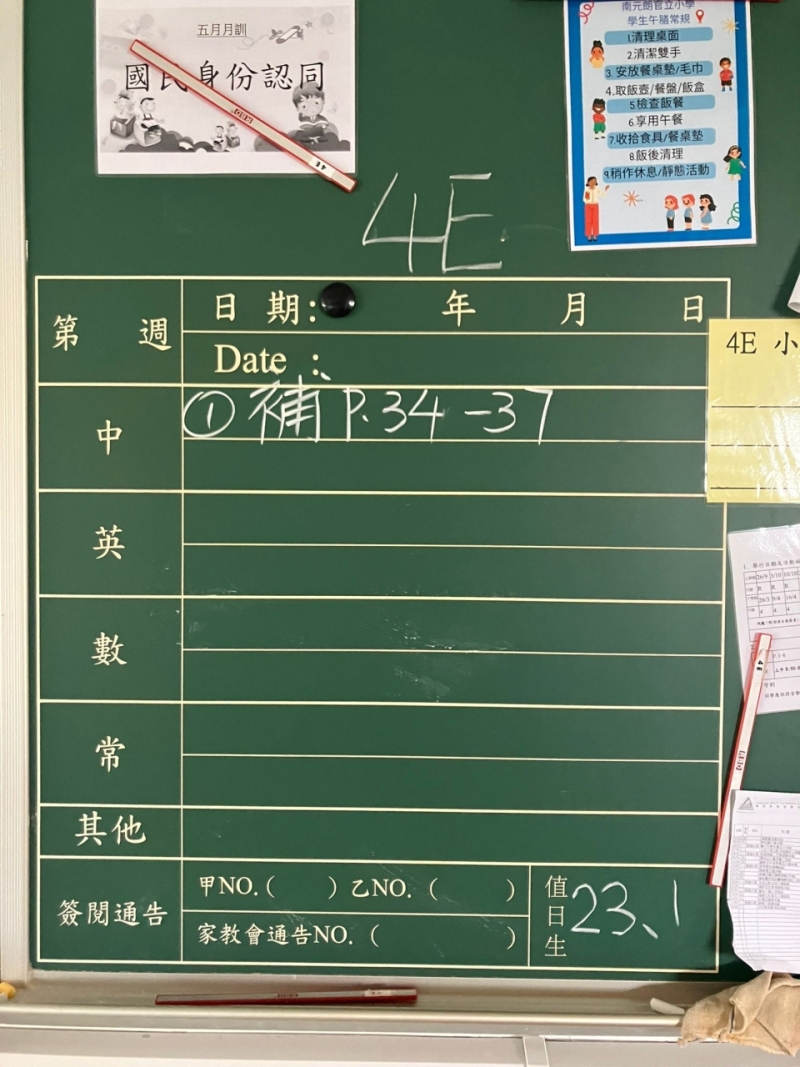 五月月訓
國民身份認同
4E
南元朗官立小學
學生午膳常規
1.清理桌面
2.清潔雙手
3.安放餐桌墊/毛巾
4.取飯壺/餐盤/飯盒
5.檢查飯餐
6.享用午餐
7.收拾食具/餐桌墊
8.飯後清理
9.稍作休息/靜態活動
4E
第 週
日 期: 年 月 日
Date :
中
① 補 P.34-37
英
數
常
其他
簽閱通告
甲NO.( ) 乙NO. ( )
家教會通告NO. ( )
值日生
23、1
4E 小
4E